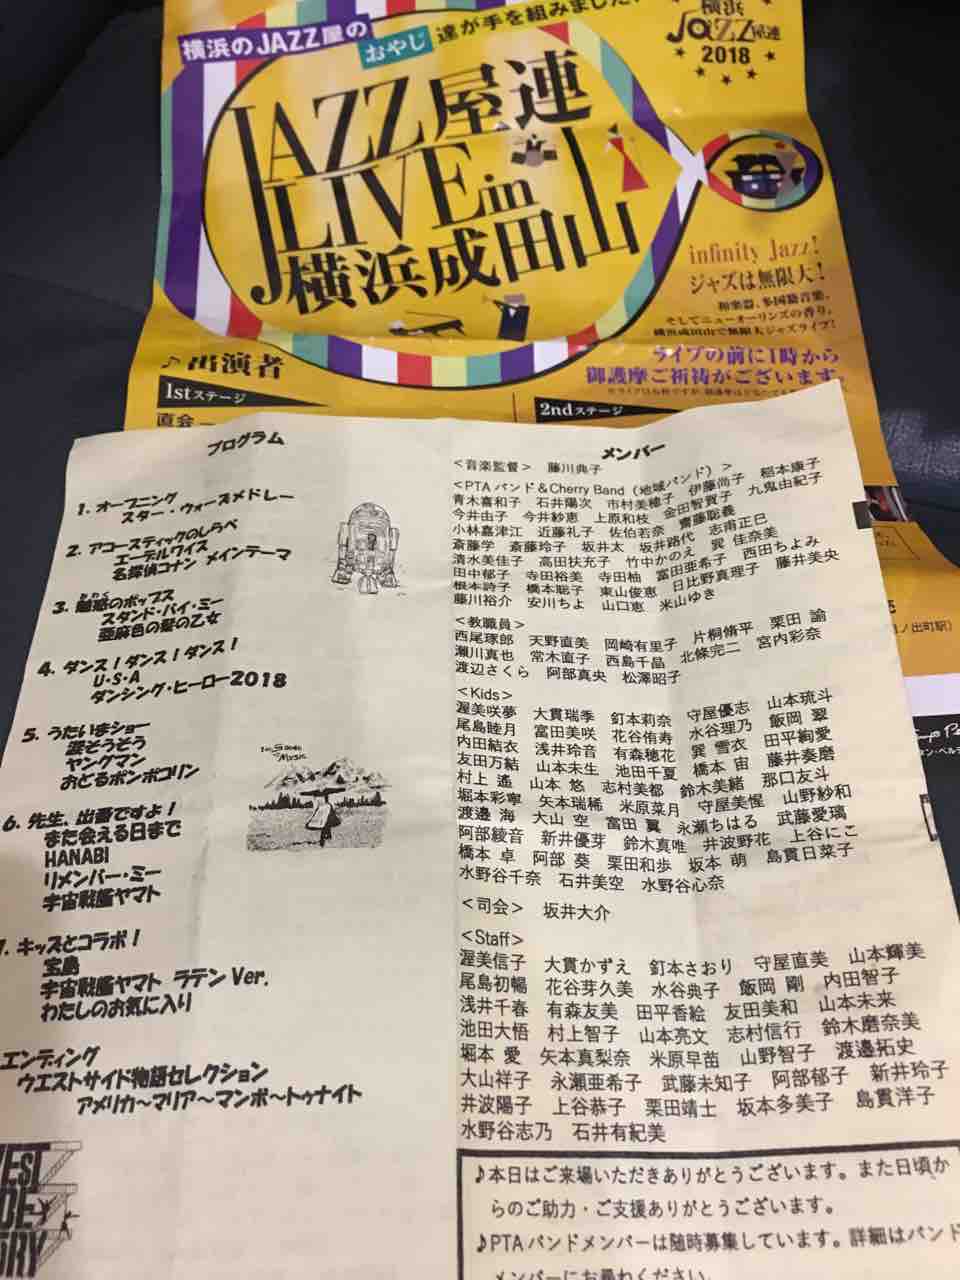 横浜のJAZZ屋の
おやじ
達が手を組みました
横浜
JaZZ屋連
2018
JAZZ屋連
LIVE in
横浜成田山
infinity Jazz!
ジャズは無限大!
和楽器、多国籍音楽、
そしてニューオーリンズの香り。
横浜成田山で無限大ジャズライブ!
ライブの前に1時から
御護摩ご祈祷がございます。
♪出演者
1stステージ
2ndステージ
直会
ノ出町駅)
プログラム
1. オープニング
スター・ウォーズメドレー
2. アコースティックのしらべ
エーデルワイス
名探偵コナン メインテーマ
3. 魅惑のポップス
わく
スタンド・バイ・ミー
亜麻色の髪の乙女
4. ダンス!ダンス!ダンス!
U・S・A
ダンシング・ヒーロー2018
5. うたいまショー
涙そうそう
ヤングマン
おどるポンポコリン
The Sound of Music
6. 先生、出番ですよ!
また会える日まで
HANABI
リメンバー・ミー
宇宙戦艦ヤマト
7. キッズとコラボ!
宝島
宇宙戦艦ヤマト ラテンVer.
わたしのお気に入り
エンディング
ウエストサイド物語セレクション
アメリカ〜マリア〜マンボ〜トゥナイト
メンバー
<音楽監督> 藤川典子
<PTAバンド&Cherry Band(地域バンド)>
青木喜和子 石井陽次 市村美穂子 伊藤尚子 稲本康子
今井由子 今井紗恵 上原和枝 金田智賀子 九鬼由紀子
小林嘉津江 近藤礼子 佐伯若奈 齋藤聡義
斎藤学 斎藤玲子 坂井太 坂井路代 志甫正巳
清水美佳子 高田扶充子 竹中かのえ 巽 佳奈美
田中郁子 寺田裕美 寺田柚 富田亜希子 西田ちよみ
根本詩子 橋本聡子 東山俊恵 日比野真理子 藤井美央
藤川裕介 安川ちよ 山口恵 米山ゆき
<教職員>
西尾琢郎 天野直美 岡崎有里子 片桐脩平 栗田 諭
瀬川真也 常木直子 西島千晶 北條完二 宮内彩奈
渡辺さくら 阿部真央 松澤昭子
<Kids>
渥美咲夢 大貫瑞季 釘本莉奈 守屋優志 山本琉斗
尾島睦月 富田美咲 花谷侑寿 水谷理乃 飯岡 翠
内田結衣 浅井玲音 有森穂花 巽 雪衣 田平絢愛
友田万結 山本未生 池田千夏 橋本 宙 藤井奏磨
村上 遙 山本 悠 志村美都 鈴木美緒 那口友斗
堀本彩寧 矢本瑞稀 米原菜月 守屋美惺 山野紗和
渡邊 海 大山 空 富田 翼 永瀬ちはる 武藤愛璃
阿部綾音 新井優芽 鈴木真唯 井波野花 上谷にこ
橋本 卓 阿部 葵 栗田和歩 坂本 萌 島貫日菜子
水野谷千奈 石井美空 水野谷心奈
<司会> 坂井大介
<Staff>
渥美信子 大貫かずえ 釘本さおり 守屋直美 山本輝美
尾島初暢 花谷芽久美 水谷典子 飯岡 剛 内田智子
浅井千春 有森友美 田平香絵 友田美和 山本未来
池田大悟 村上智子 山本亮文 志村信行 鈴木磨奈美
堀本 愛 矢本真梨奈 米原早苗 山野智子 渡邉拓史
大山祥子 永瀬亜希子 武藤未知子 阿部郁子 新井玲子
井波陽子 上谷恭子 栗田靖士 坂本多美子 島貫洋子
水野谷志乃 石井有紀美
♪本日はご来場いただきありがとうございます。また日頃か
らのご助力・ご支援ありがとうございます。
♪PTAバンドメンバーは随時募集しています。詳細はバンド
メンバーにお尋ねください。